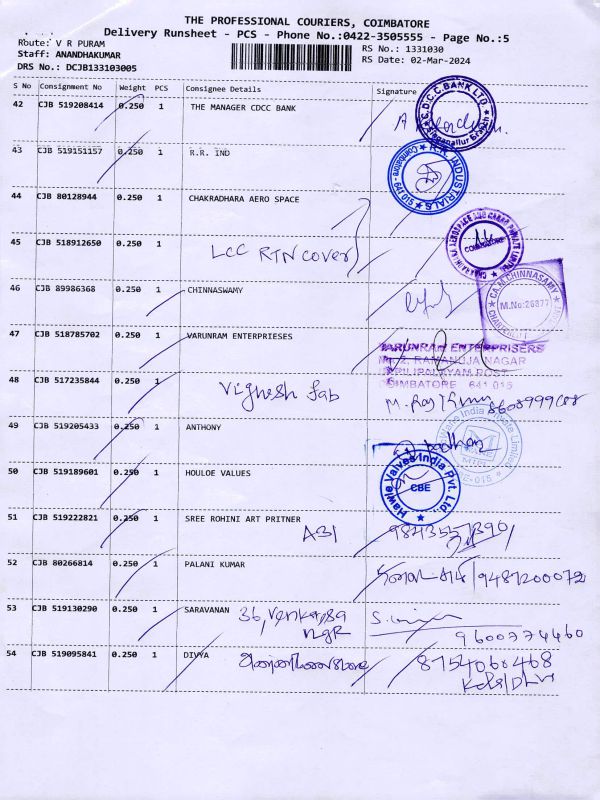 THE PROFESSIONAL COURIERS, COIMBATORE
Delivery Runsheet - PCS - Phone No.:0422-3505555 - Page No.:5
Route: V R PURAM
RS No.: 1331030
Staff: ANANDHAKUMAR
RS Date: 02-Mar-2024
DRS No.: DCJB133103005
S No Consignment No Weight PCS Consignee Details Signature
42 CJB 519208414 0.250 1 THE MANAGER CDCC BANK
C.D.C.C. BANK LTD.
43 CJB 519151157 0.250 1 R.R. IND
R.R. INDUSTRIALS
Coimbatore - 641 015
44 CJB 80128944 0.250 1 CHAKRADHARA AERO SPACE
CHAKRADHARA AEROSPACE AND CARGO PRIVATE LIMITED
COIMBATORE
45 CJB 518912650 0.250 1 LCC RTN cover
46 CJB 89986368 0.250 1 CHINNASWAMY
CA.M.CHINNASAMY
M.No:26877
47 CJB 518785702 0.250 1 VARUNRAM ENTERPRIESES
VARUNRAM ENTERPRISERS
RAMANUJA NAGAR
UPPILIPALAYAM POST
COIMBATORE 641 015
48 CJB 517235844 0.250 1 Vignesh fab
49 CJB 519205433 0.250 1 ANTHONY
50 CJB 519189601 0.250 1 HOULOE VALUES
Hawle Valves India Pvt. Ltd.
CBE
51 CJB 519222821 0.250 1 SREE ROHINI ART PRITNER
A31 9843557390
52 CJB 80266814 0.250 1 PALANI KUMAR
9487200072
53 CJB 519130290 0.250 1 SARAVANAN 36, Venkatesa
NGR
9600774460
54 CJB 519095841 0.250 1 DIVYA
8754060468